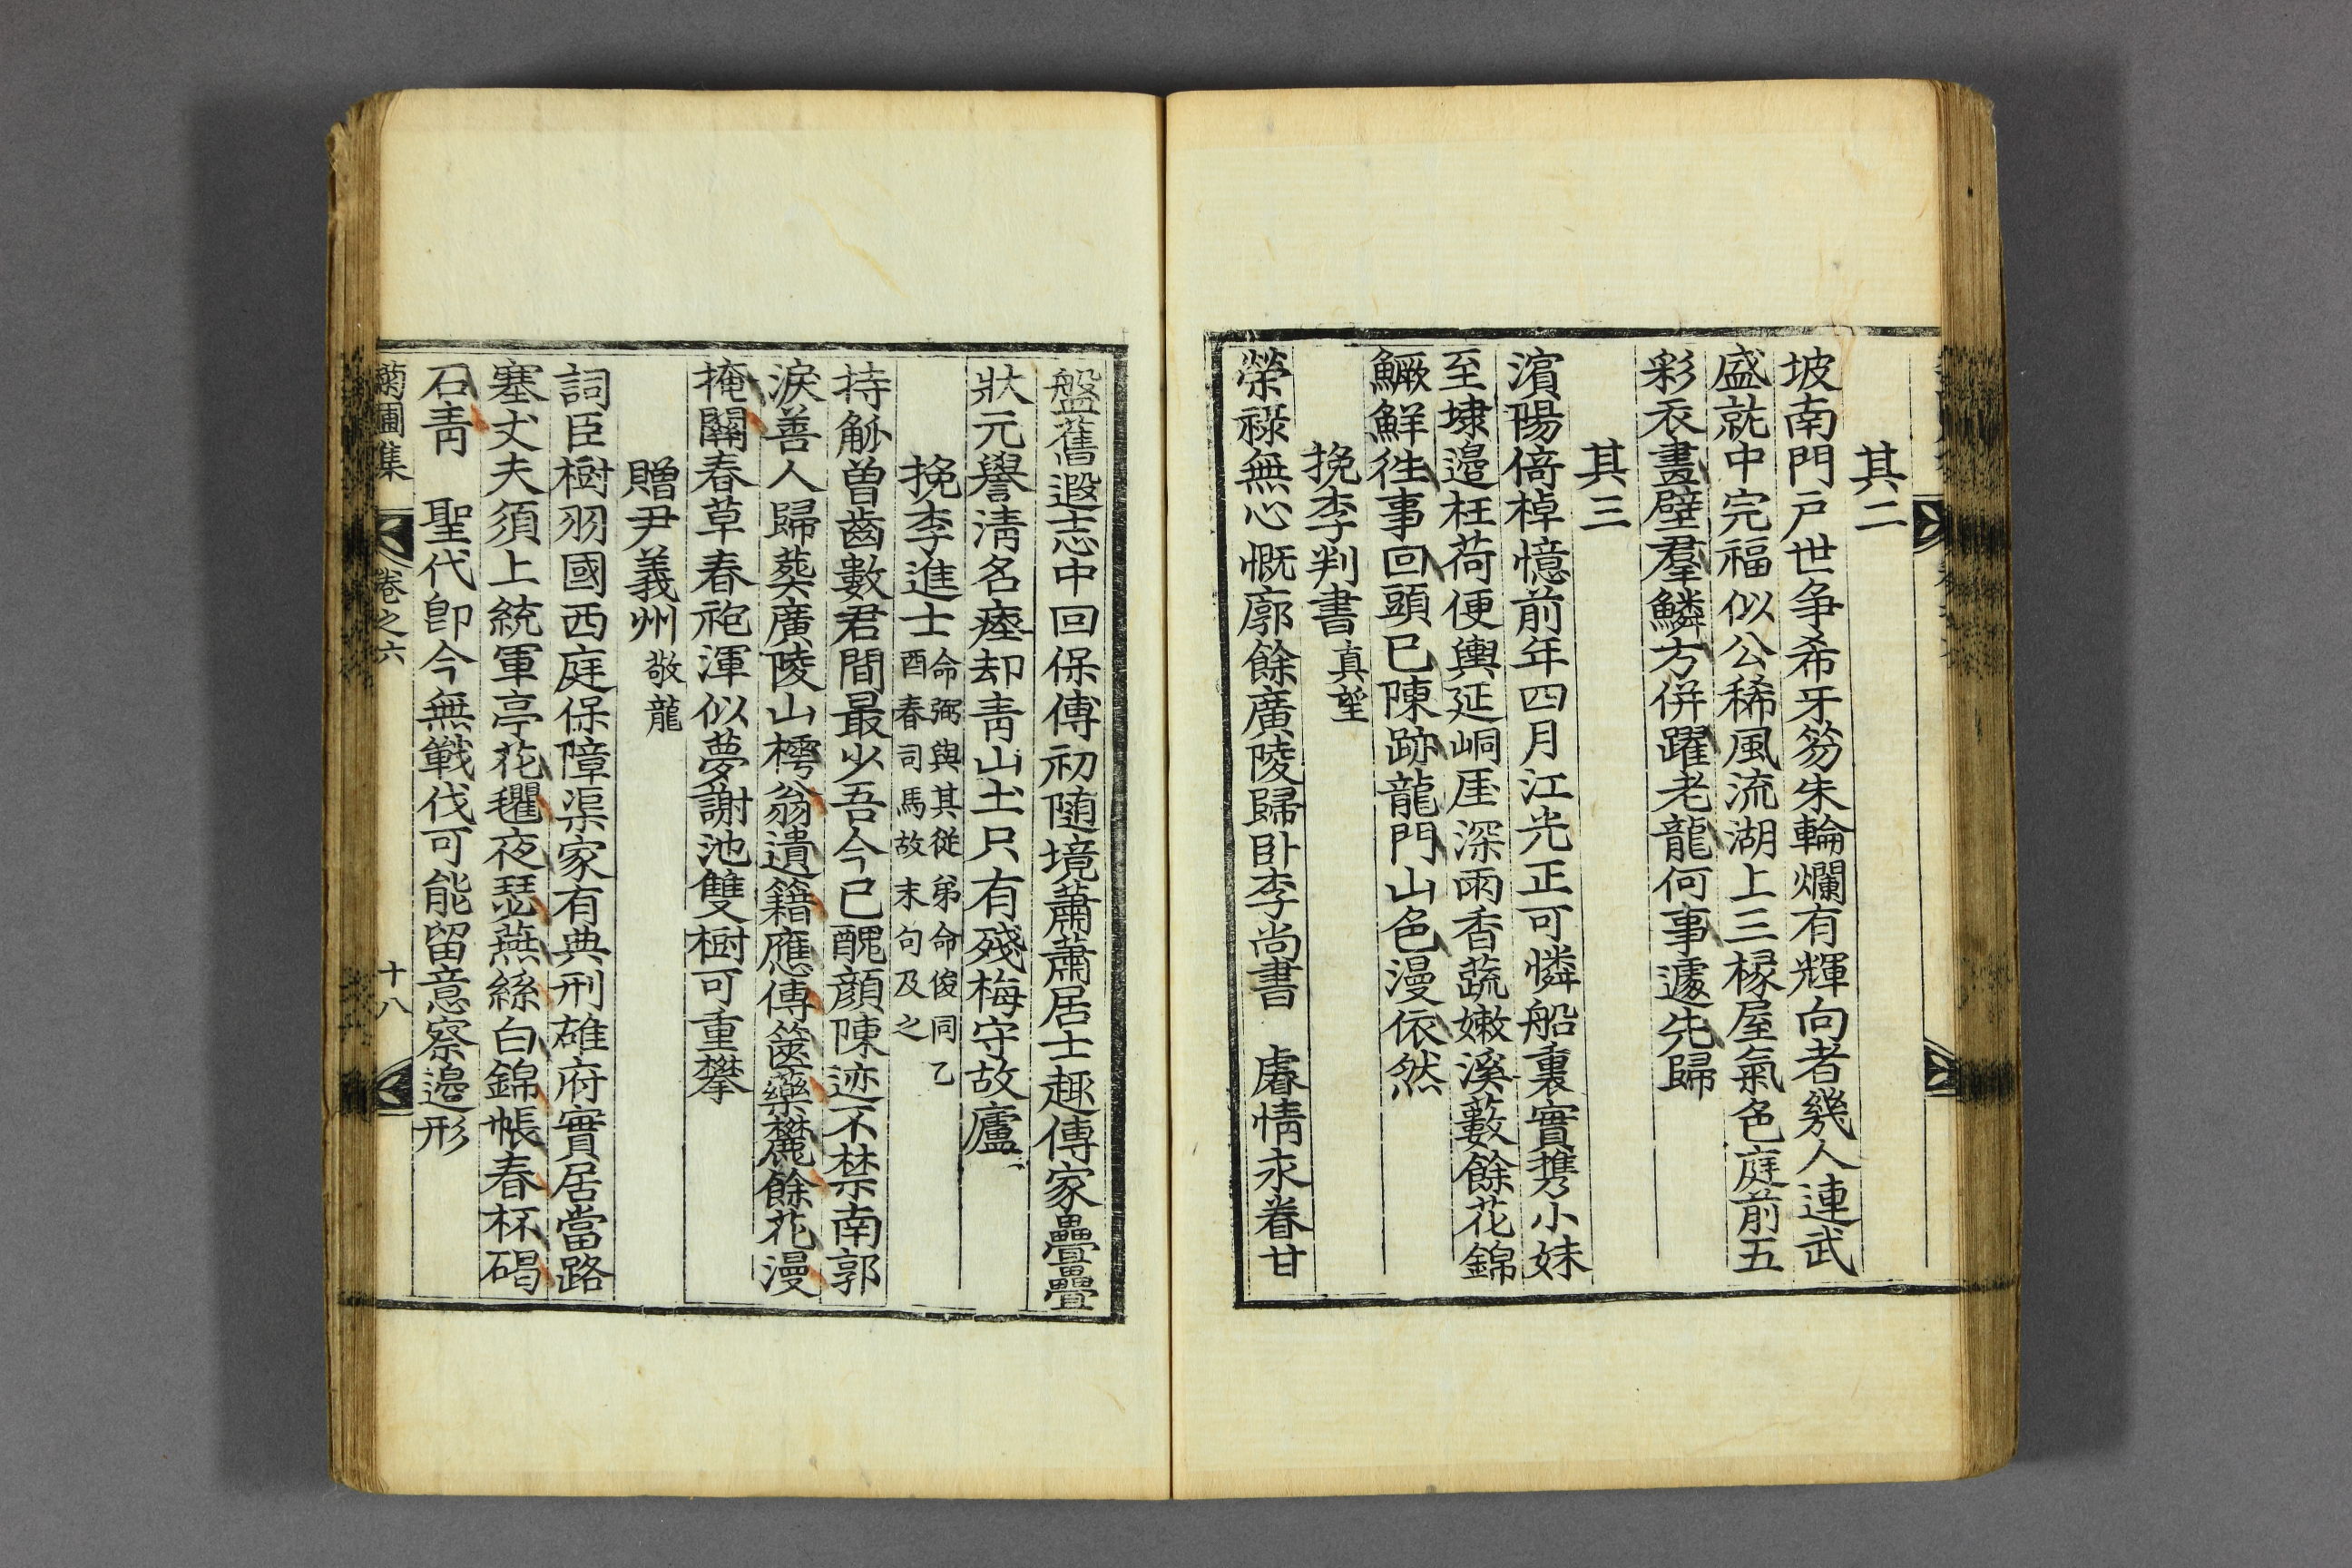 其二
坡南門戶世争希牙笏朱輪爛有輝向者幾人連武
盛就中完福似公稀風流湖上三椽屋氣色庭前五
彩衣畫壁羣鱗方併躍老龍何事遽先歸
其三
濱陽倚棹憶前年四月江光正可憐船裏實携小妹
至埭邉枉荷便輿延峒厓深雨香蔬嫩溪藪餘花錦
鱖鮮徃事回頭已陳跡龍門山色漫依然
挽李判書真望
榮祿無心慨廓餘廣陵歸卧李尚書 㫪情永眷甘
盤舊遐志中回保傅初随境蕭蕭居士趣傳家疊疊
狀元譽淸名瘞却靑山土只有殘梅守故廬
挽李進士命弼與其從弟命俊同乙
酉春司馬故末句及之
持觴曽齒數君間最少吾今已醜顔陳迹不禁南郭
淚善人歸葬廣陵山樗翁遺籍應傳篋藥麓餘花漫
掩關春草春袍渾似夢謝池雙樹可重攀
贈尹義州敬龍
詞臣樹羽國西庭保障渠家有典刑雄府實居當路
塞丈夫須上統軍亭花氍夜瑟燕絲白錦帳春杯碣
石靑 聖代卽今無戰伐可能留意察邉形
菊圃集 卷之六 十八